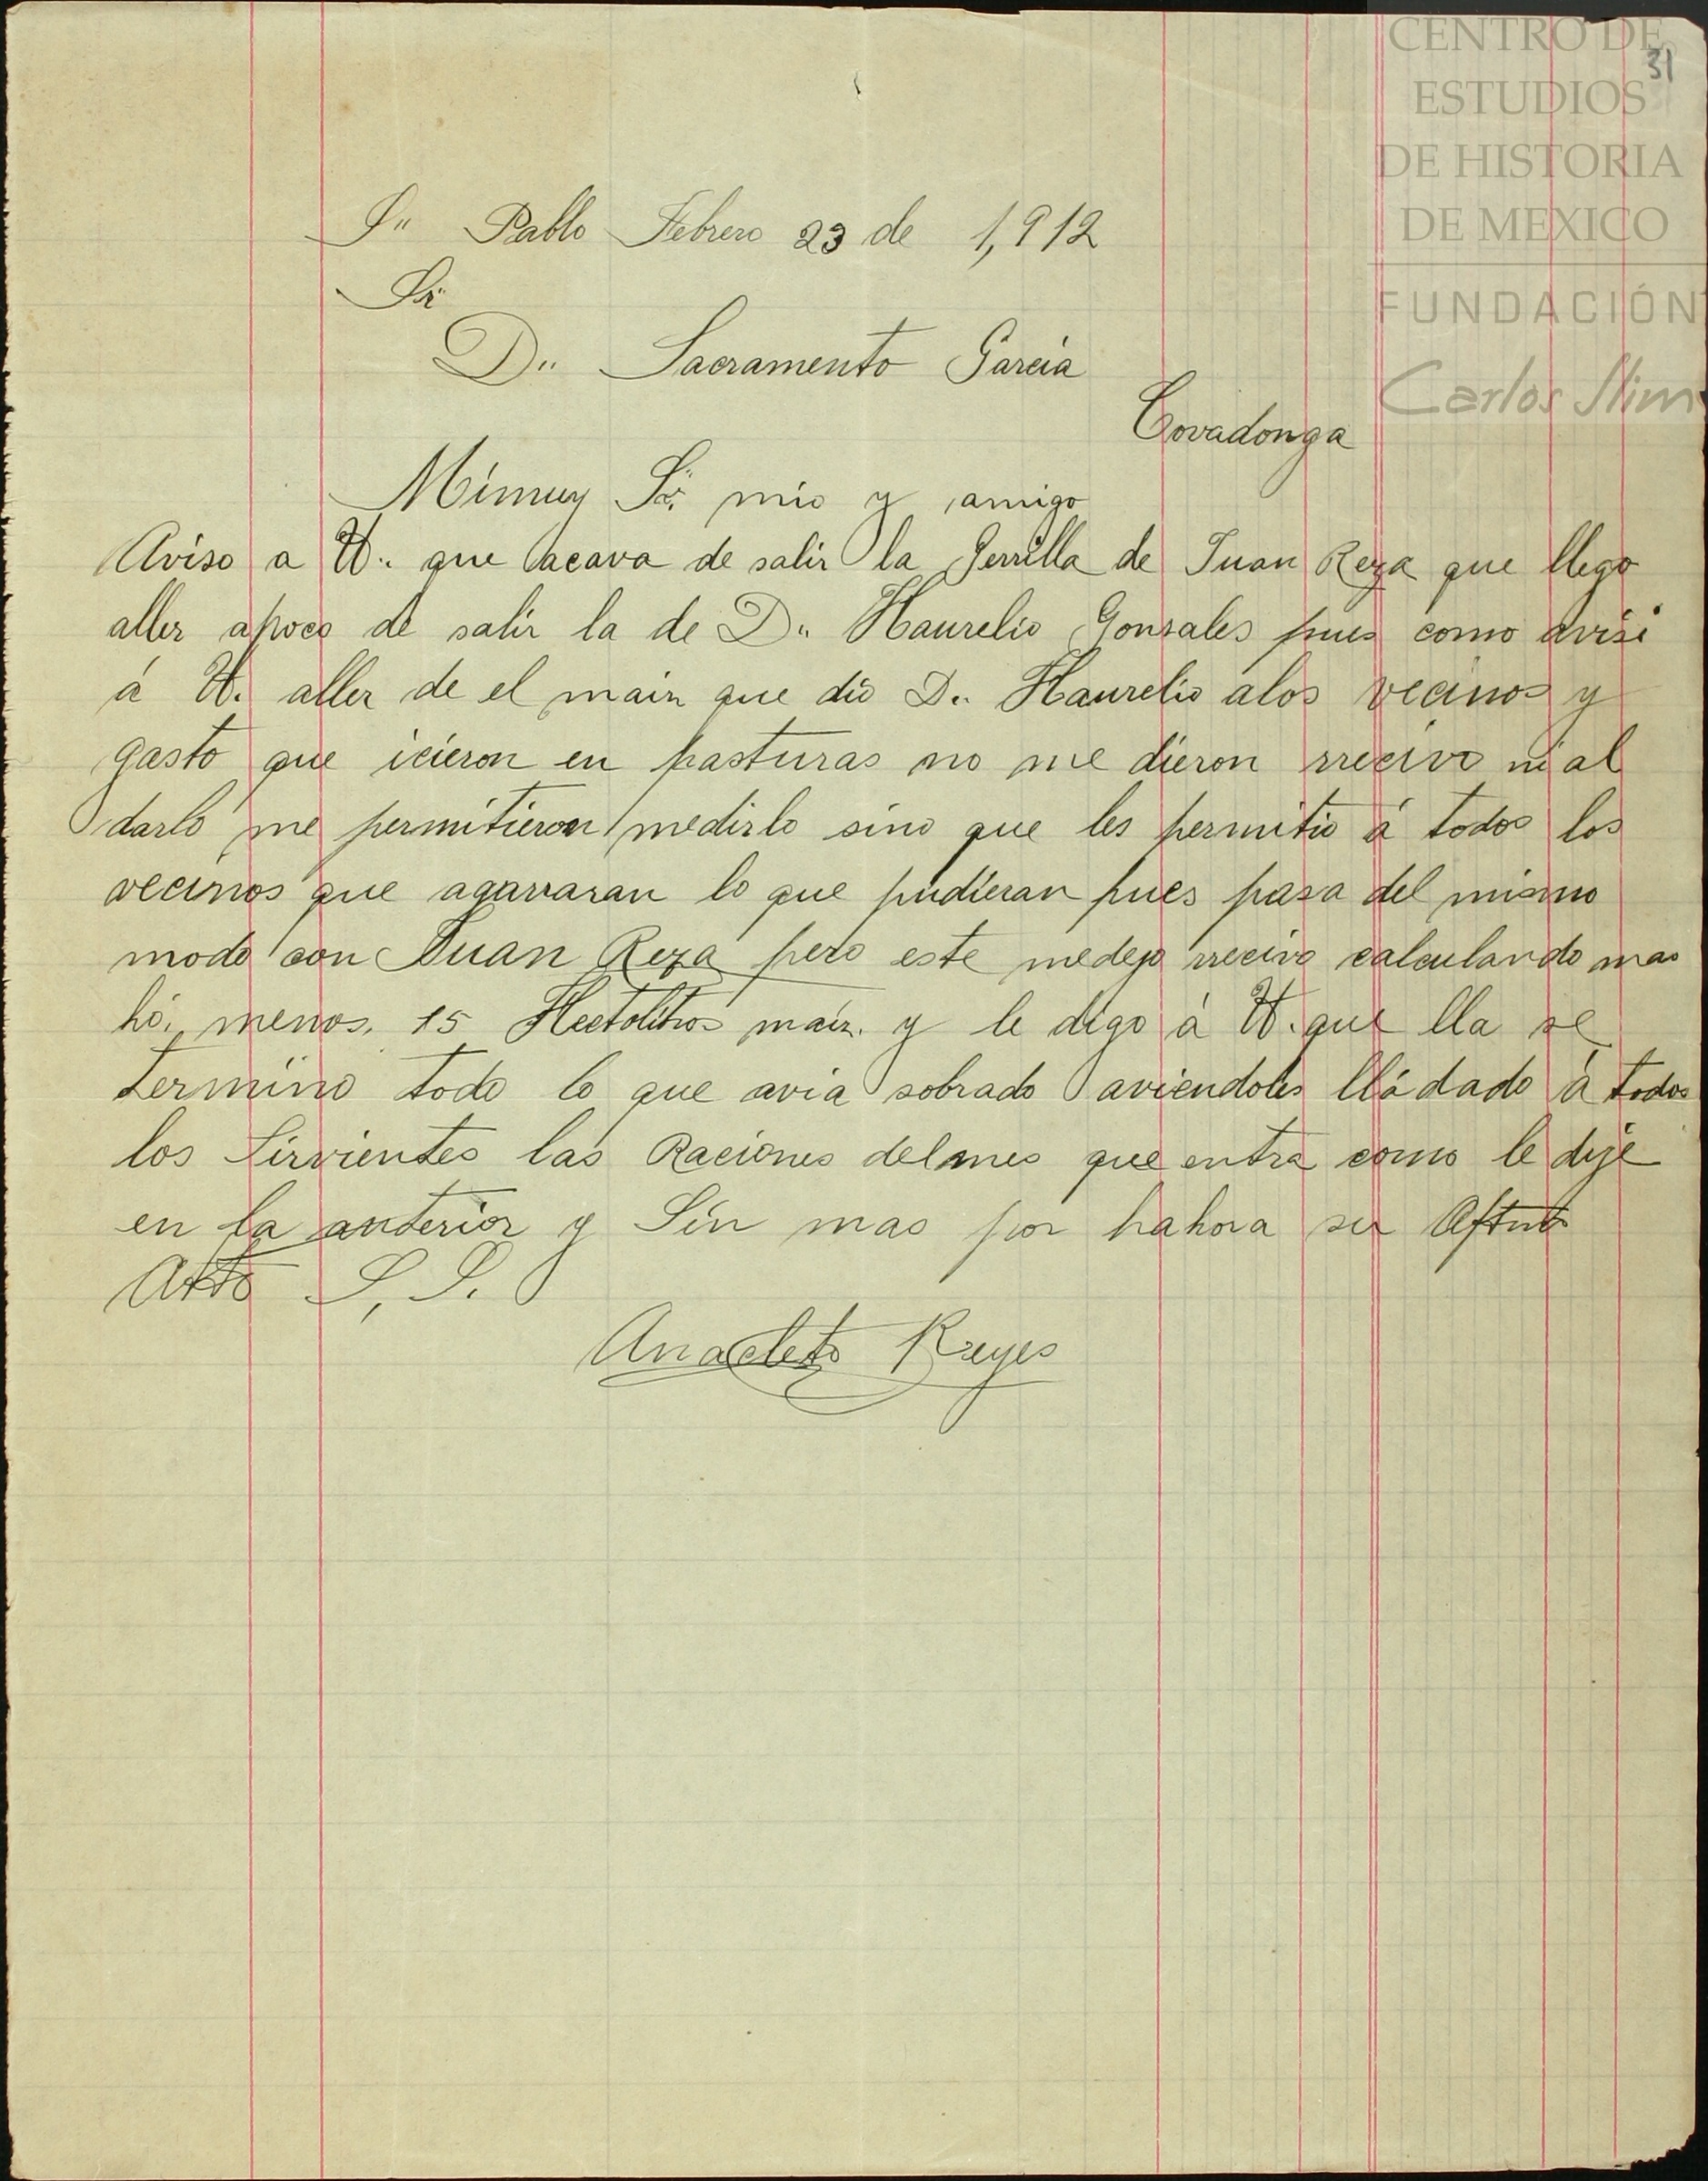 CENTRO DE
ESTUDIOS
DE HISTORIA
DE MEXICO
FUNDACIÓN
Carlos Slim
31
Sn Pablo Febrero 23 de 1,912
Sr
Dn Sacramento Garcia
Covadonga
Mimuy Sr. mio y amigo
Aviso a U. que acava de salir la Gerrilla de Juan Reza que llego
aller apoco de salir la de Dn Haurelio Gonsales pues como avise
á U. aller de el maiz que dio Dn Haurelio alos vecinos y
gasto que icieron en pasturas no me dieron rrecivo ni al
darlo me permitieron medirlo sino que les permitio á todos los
vecinos que agarraran lo que pudieran pues pasa del mismo
modo con Juan Reza pero este medejo rrecivo calculando mas
hó, menos, 15 Hectolitros maiz. y le digo á U. que lla se
termino todo lo que avia sobrado aviendoles lládado á todos
los Sirvientes las Raciones delmes que entra como le dije
en la anterior y Sin mas por hahora su Aftmo
Atto S, S.
Anacleto Reyes